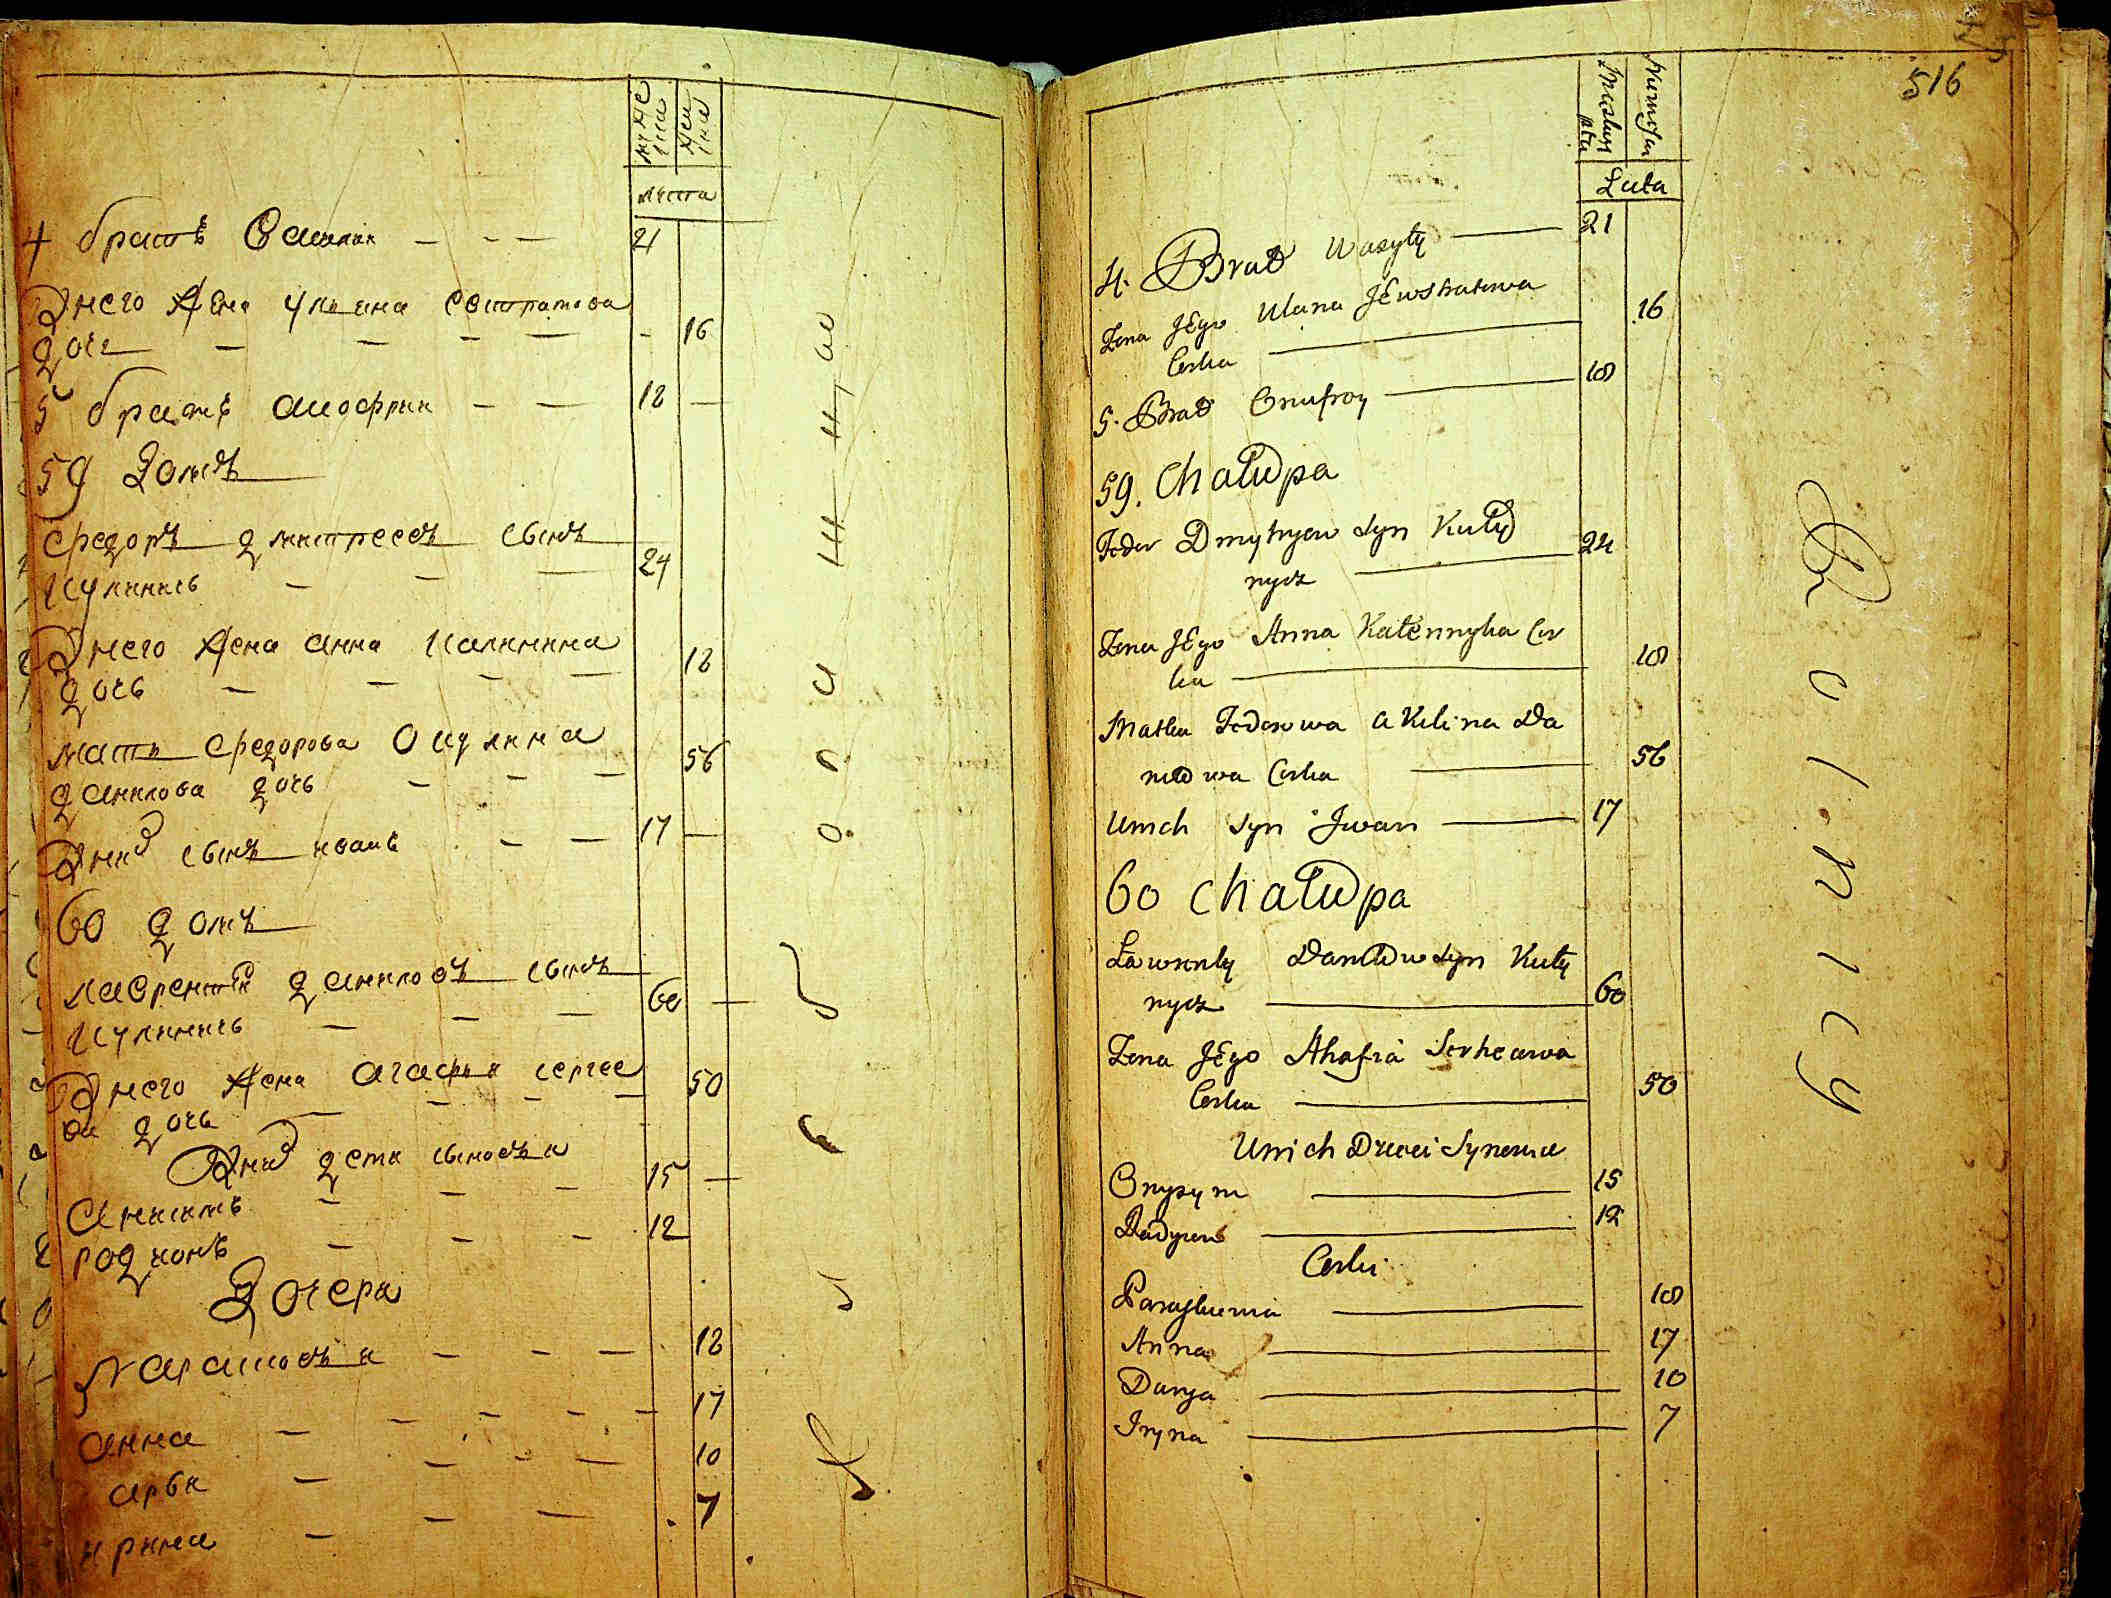 муже
ска
жен
ска
лета
4 братъ Василии 21
У него жена Ульяна Евстратова
дочь 16
5 братъ Анофрии 18
59 Домъ
Федоръ Дмитреевъ сынъ
Кулиничь 24
У него жена Анна Калинина
дочь 18
мати Федорова Окулина
Данилова дочь 56
У них сынъ иванъ 17
60 домъ
Лаврентий Даниловъ сынъ
Кулиничь 60
У него жена Агафия Сергее
ва дочь 50
У них дети сыновья
Анисимъ 15
Родионъ 12
Дочери
Парасковья 18
Анна 17
арья 10
ирина 7
516
Męskiey
płci
Niewiesciey
Lata
4. Brat Wasyly 21
Zona JEgo Ulana JEwstratowa
Corka 16
5. Brat Onufroy 18
59. Chałupa
Fedor Dmytryew Syn Kuły
nycz 24
Zona JEgo Anna Kalennyka Cor
ka 18
Matka Fedorowa Akilina Da
niłowa Corka 56
Unich Syn Jwan 17
60 Chałupa
Ławrenty Daniłow Syn Kuły
nycz 60
Zona JEgo Ahafia Serheawa
Corka 50
Unich Dzieci Synowie
Onysym 15
Radywon 12
Corki
Paraskiewia 18
Anna 17
Darya 10
Iryna 7
R o l n i c y